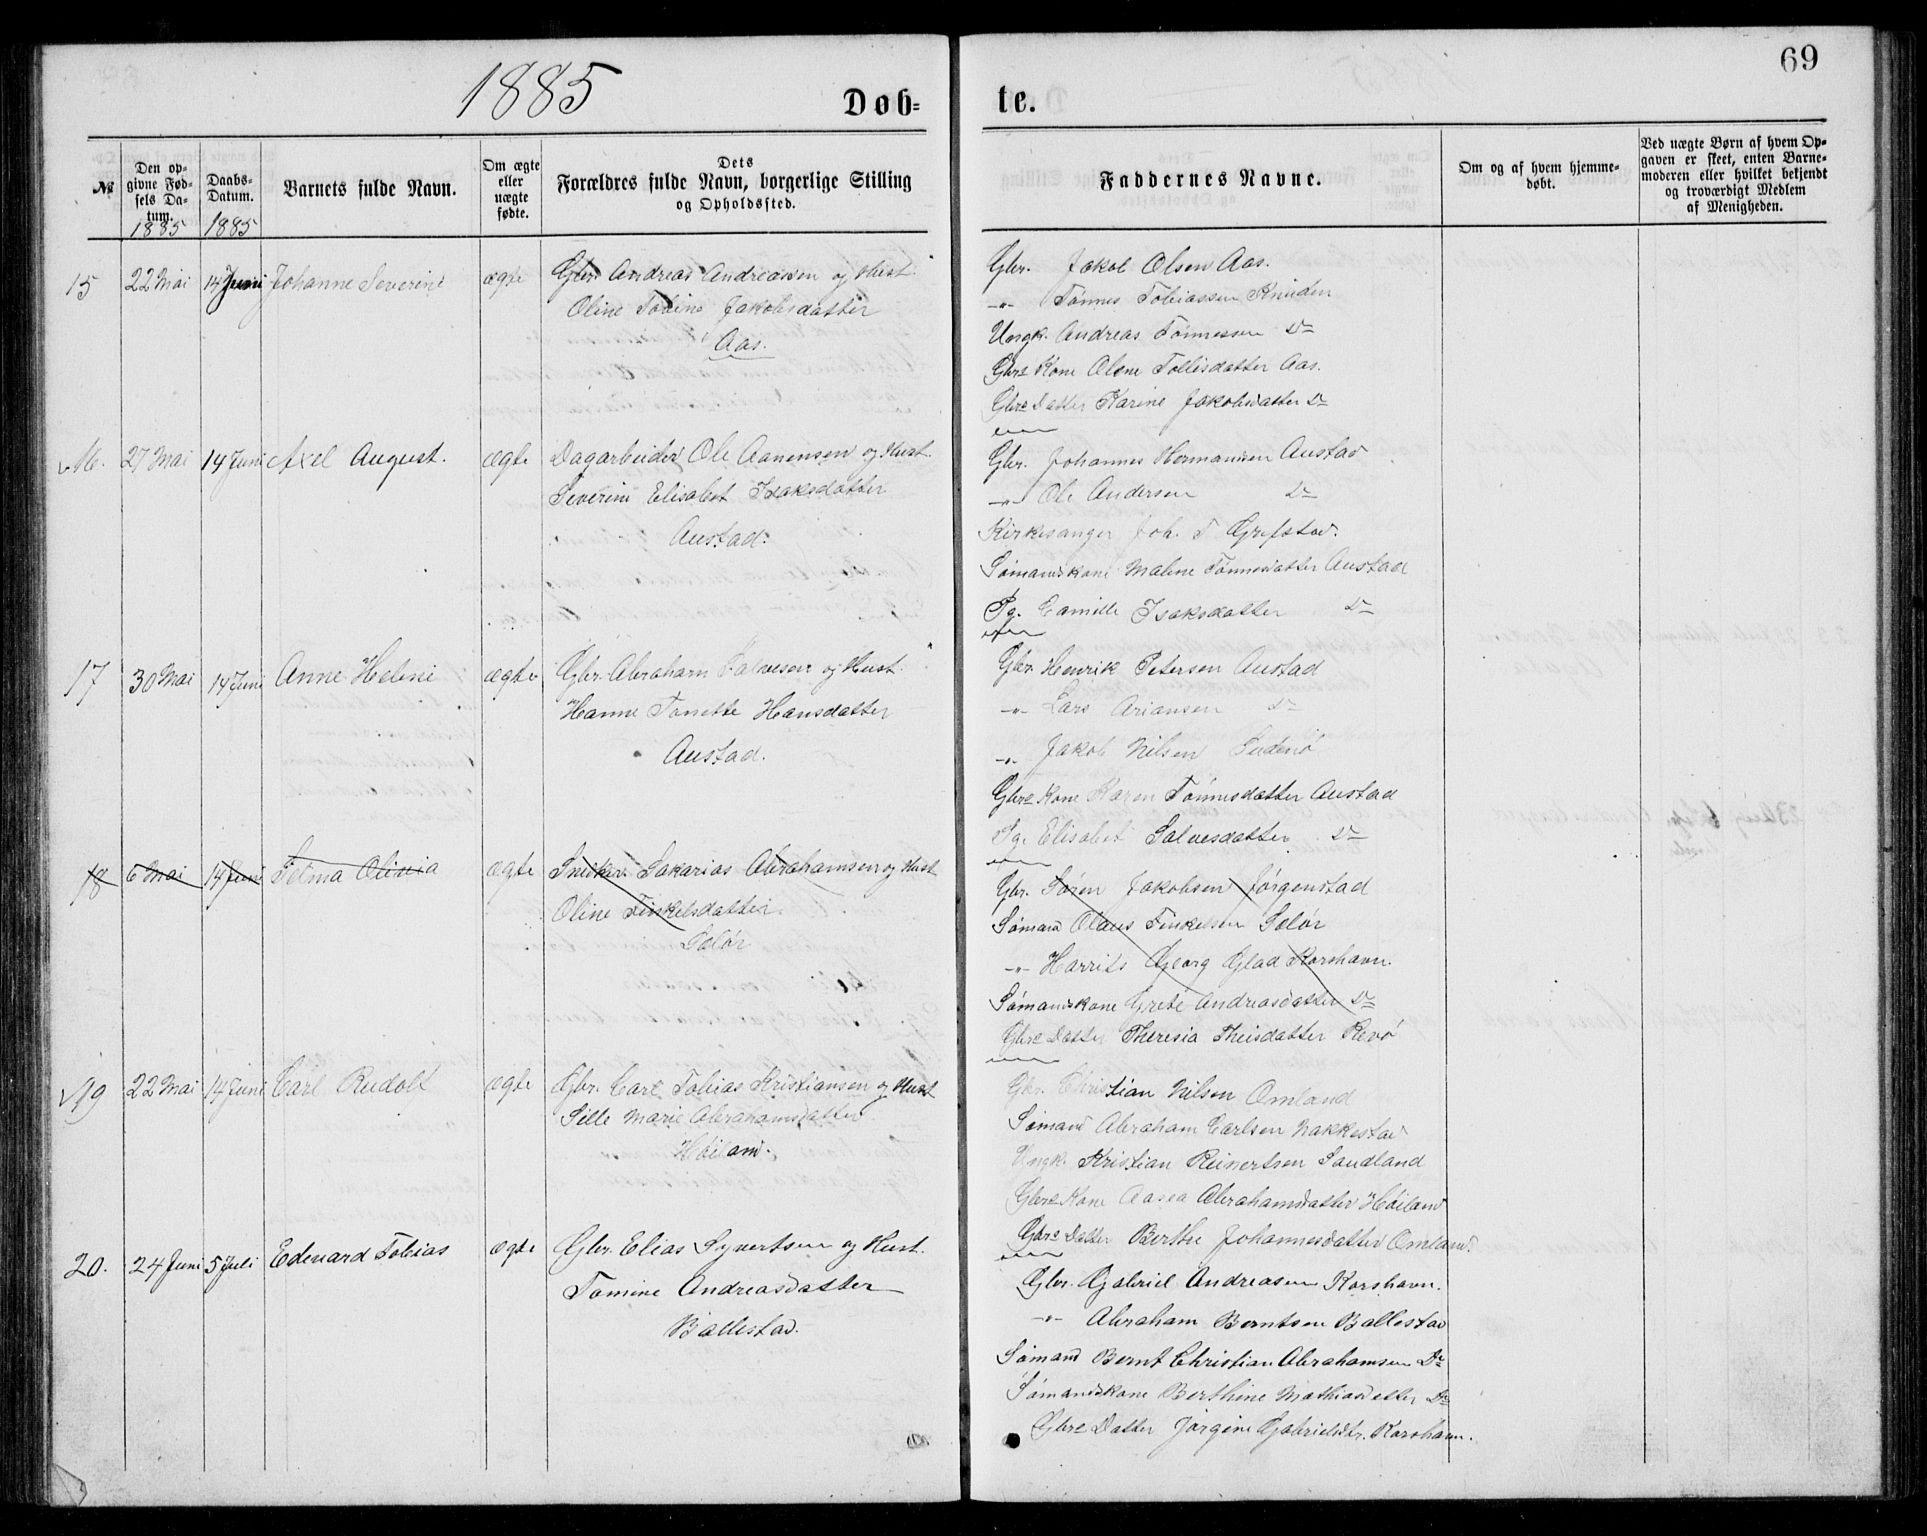 1885
Døb-
te.
69
№
Den op-
givne Fød-
sels Da-
tum.
1885
Daabs-
Datum.
1885
Barnets fulde Navn.
Om ægte
eller
uægte
fødte.
Dets
Forældres fulde Navn, borgerlige Stilling
og Opholdssted.
Faddernes Navne.
Om og af hvem hjemme-
døbt.
Ved uægte Børn af hvem Op-
gaven er skeet, enten Barne-
moderen eller hvilket bekjendt
og troværdigt Medlem
af Menigheden.
15 22 Mai 14 Juni Johanne Severine ægte Gbr Andreas Andreassen og Hust.
Oline Tobine Jakobsdatter
Aas.
Gbr. Jakob Olsen Aas.
-"- Tønnes Tobiassen Knuden
Ungk. Andreas Tønnessen Do
Gbrs Kone Olene Tollisdatter Aas.
Gbrs Datter Karine Jakobsdatter Do
16. 27 Mai 14 Juni Axel August. ægte Dagarbeider Ole Aanensen og Hust.
Severine Elisabet Isaksdatter
Austad.
Gbr. Johannes Hermansen Austad
-"- Ole Andersen Do
Kirkesanger Joh. T Grefstad.
Sømandskone Maline Tønnesdatter Austad
Pg. Camille Isaksdatter Do
17 30 Mai 14 Juni Anne Heline ægte Gbr. Abraham Salvesen og Hust.
Hanne Tonette Hansdatter
Austad.
Gbr. Henrik Petersen Austad
-"- Lars Ariansen Do
-"- Jakob Nilsen
Gbrs Kone Karen Tønnesdatter Austad
Pg. Elisabet Salvesdatter Do
18 6 Mai 14 Juni Selma Olivia ægte Sneiker Sakarias Abrahamsen og Hust
Oline Finkelsdatter
Selør
Gbr. Søren Jakobsen Jørgenstad
Sømand Olaus Finkelsen Selør
-"- Harrits Georg Glad Korshavn.
Sømandskone Grete Andreasdatter Do
Gbrs Datter Theresia Theisdatter Revø
19 22 Mai 14 Juni Carl Rudolf ægte Gbr. Carl Tobias Kristiansen og Hust
Sille Marie Abrahamsdatter
Høiland.
Gbr. Christian Nilsen Omland
Sømand Abraham Carlsen Nakkestad
Ungk. Kristian Reinertsen Sandland
Gbrs Kone Aasea Abrahamsdatter Høiland
Gbrs Datter Berthe Johannesdatter Omland.
20. 24 Juni 5 Juli Edevard Tobias ægte Gbr. Elias Syvertsen og Hust.
Tomine Andreasdatter
Ballestad.
Gbr. Gabriel Andreasen Korshavn.
-"- Abraham Berntsen Ballestad
Sømand Bernt Christian Abrahamsen Do
Sømandskone Berthine Mathiasdatter Do
Gbrs Datter Jørgine Gabrielsdtr. Korshavn.